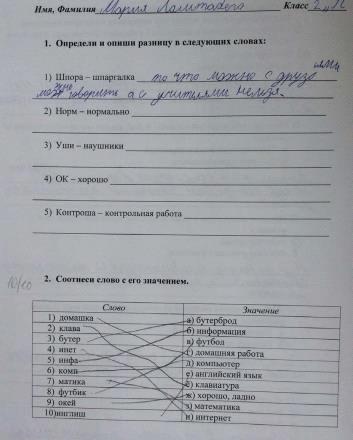 Имя, Фамилия Мария Класс 2
1. Определи и опиши разницу в следующих словах:
1) Шпора – шпаргалка то что можно с друзьями
говорить а с учителями нельзя.
2) Норм – нормально
3) Уши – наушники
4) ОК – хорошо
5) Контроша – контрольная работа
10/10
2. Соотнеси слово с его значением.
Слово Значение
1) домашка а) бутерброд
2) клава б) информация
3) бутер в) футбол
4) инет г) домашняя работа
5) инфа д) компьютер
6) комп е) английский язык
7) матика ё) клавиатура
8) футбик ж) хорошо, ладно
9) окей з) математика
10)инглиш и) интернет